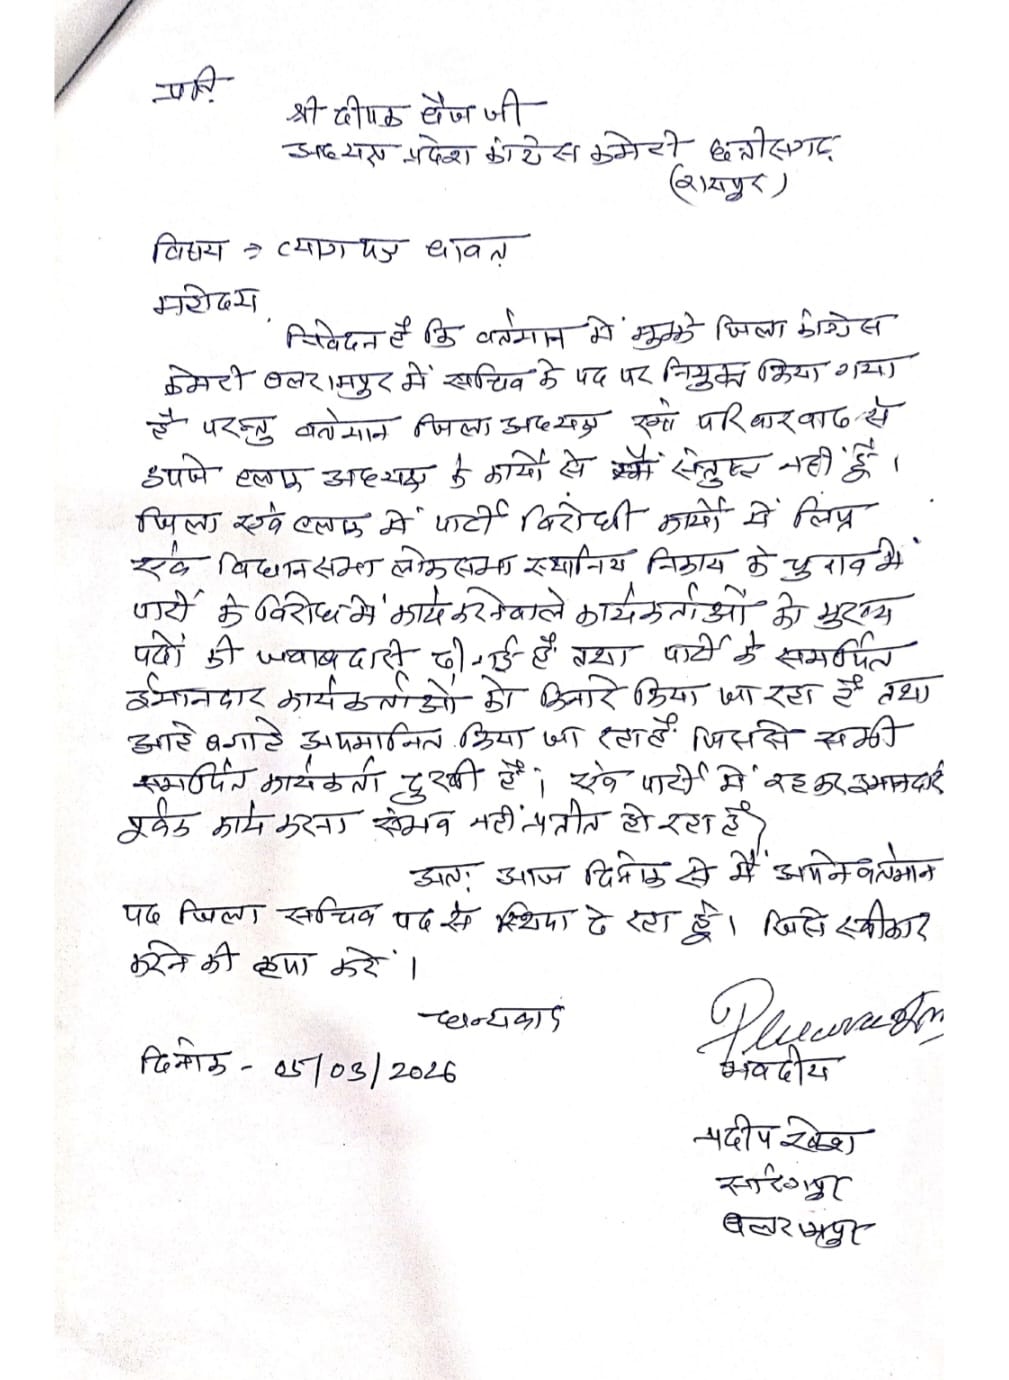 प्रति,
श्री दीपक बैज जी
अध्यक्ष प्रदेश कांग्रेस कमेटी छत्तीसगढ़
(रायपुर)
विषय → त्याग पत्र बाबत्
महोदय,
निवेदन है कि वर्तमान में मुझे जिला कांग्रेस
कमेटी बलरामपुर में सचिव के पद पर नियुक्त किया गया
है परन्तु वर्तमान जिला अध्यक्ष एवं परिवारवाद से
उपजे ब्लाक अध्यक्ष के कार्यो से मैं संतुष्ट नहीं हूँ।
जिला एवं ब्लाक में पार्टी विरोधी कार्यो में लिप्त
एवं विधानसभा लोकसभा स्थानिय निकाय के चुनाव में
पार्टी के विरोध में कार्य करनेवाले कार्यकर्ताओं को मुख्य
पदों की जवाबदारी दी गई है तथा पार्टी के समर्पित
ईमानदार कार्यकर्ताओं को किनारे किया जा रहा है तथा
आहे बगाहे अपमानित किया जा रहा है जिससे सभी
समर्पित कार्यकर्ता दुखी हैं। एवं पार्टी में रह कर इमानदारी
पूर्वक कार्य करना संभव नहीं प्रतीत हो रहा है
अतः आज दिनांक से मैं अपने वर्तमान
पद जिला सचिव पद से स्थिपा दे रहा हूँ। जिसे स्वीकार
करने की कृपा करें।
धन्यवाद
दिनांक - 05/03/2026
भवदीय
प्रदीप
बलरामपुर